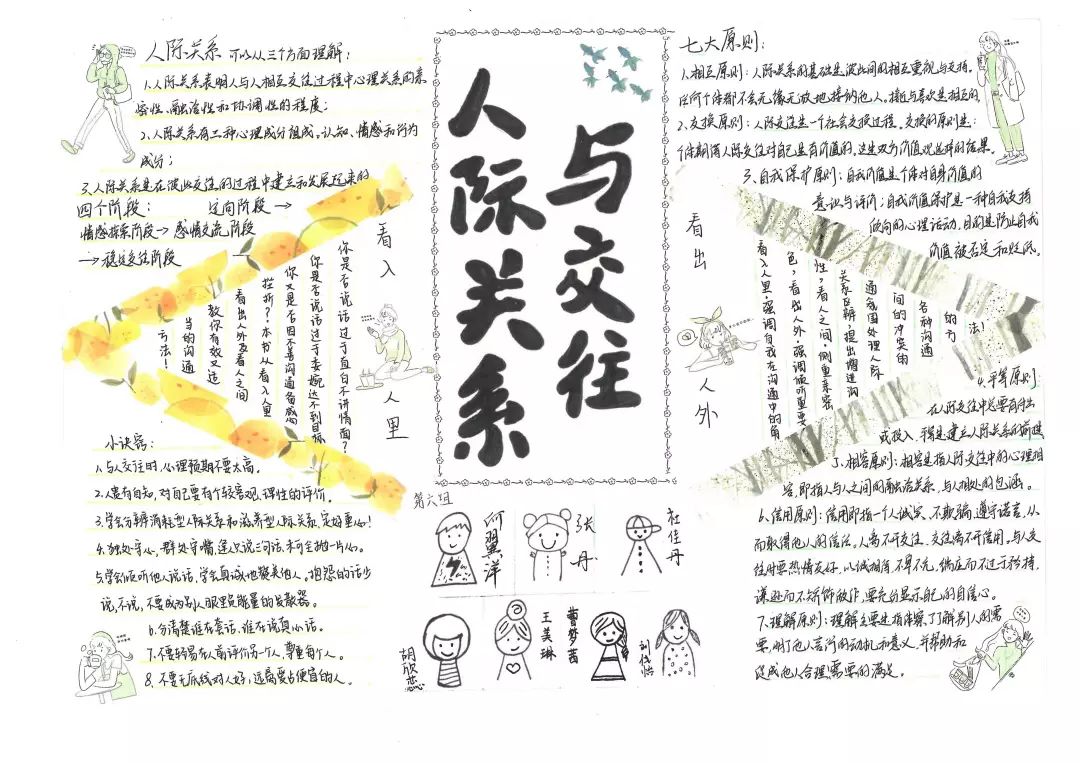 人际关系 可以从三个方面理解：
1.人际关系表明人与人相互交往过程中心理关系的亲
密性、融洽性和协调性的程度；
2.人际关系有三种心理成分组成。认知、情感和行为
成分；
3.人际关系是在彼此交往的过程中建立和发展起来的
四个阶段： 定向阶段→
情感探索阶段→感情交流阶段
→稳定交往阶段
看入人里
你是否说话过于直白不讲情面？
你是否说话过于委婉达不到目标
你又是否因不善沟通备感
挫折？本书从看入人里
看出人外及看人之间
教你有效又适
当的沟通
方法！
小诀窍：
1.与人交往时，心理预期不要太高。
2.人贵有自知，对自己要有个较客观、理性的评价。
3.学会分辨消耗型人际关系和滋养型人际关系，定好重心！
4.独处守心，群处守嘴，逢人只说三句话，未可全抛一片心。
5.学会倾听他人说话，学会真诚地赞美他人。抱怨的话少
说，不说，不要成为别人眼里负能量的发散器。
6.分清楚谁在套话，谁在说真心话。
7.不要轻易在人前评价另一个人，尊重每个人。
8.不要无底线对人好，远离爱占便宜的人。
人际关系
与交往
第六组
何翼洋
张丹
杜佳丹
胡欣蕊
王美琳
曹梦茜
七大原则：
1.相互原则：人际关系的基础是彼此间的相互重视与支持。
任何个体都不会无缘无故地接纳他人。接近与喜欢是相互的。
2.交换原则：人际交往是一个社会交换过程。交换的原则是：
个体期待人际交往对自己是有价值的，
3.自我保护原则：自我价值是个体对自身价值的
意识与评价；自我价值保护是一种自我支持
倾向的心理活动，目的是防止自我
价值被否定和贬低。
看出人外
看入人里，强调自我在沟通中的角
色，看出人外，强调倾听重要
性，看人之间，侧重亲密
关系区辨，提出增进沟
通各国处理人际
间的冲突的
各种沟通
的方
法！
4.平等原则：
在人际交往中总要有付出
或投入，平等是建立人际关系的前提
5.相容原则：相容是指人际交往中的心理相
容，即指人与人之间的融洽关系，与人相处的包涵。
6.信用原则：信用即指一个人诚实、不欺骗、遵守诺言，从
而取得他人的信任。人离不开交往，交往离不开信用。与人交
往时要热情友好，以诚相待，不卑不亢，端庄而不过于矜持，
谦逊而不矫饰做作，要充分显示自己的自信心。
7.理解原则：理解主要是指体察、了解别人的需
要，明了他人言行的动机和意义，并帮助和
促成他人合理需要的满足。